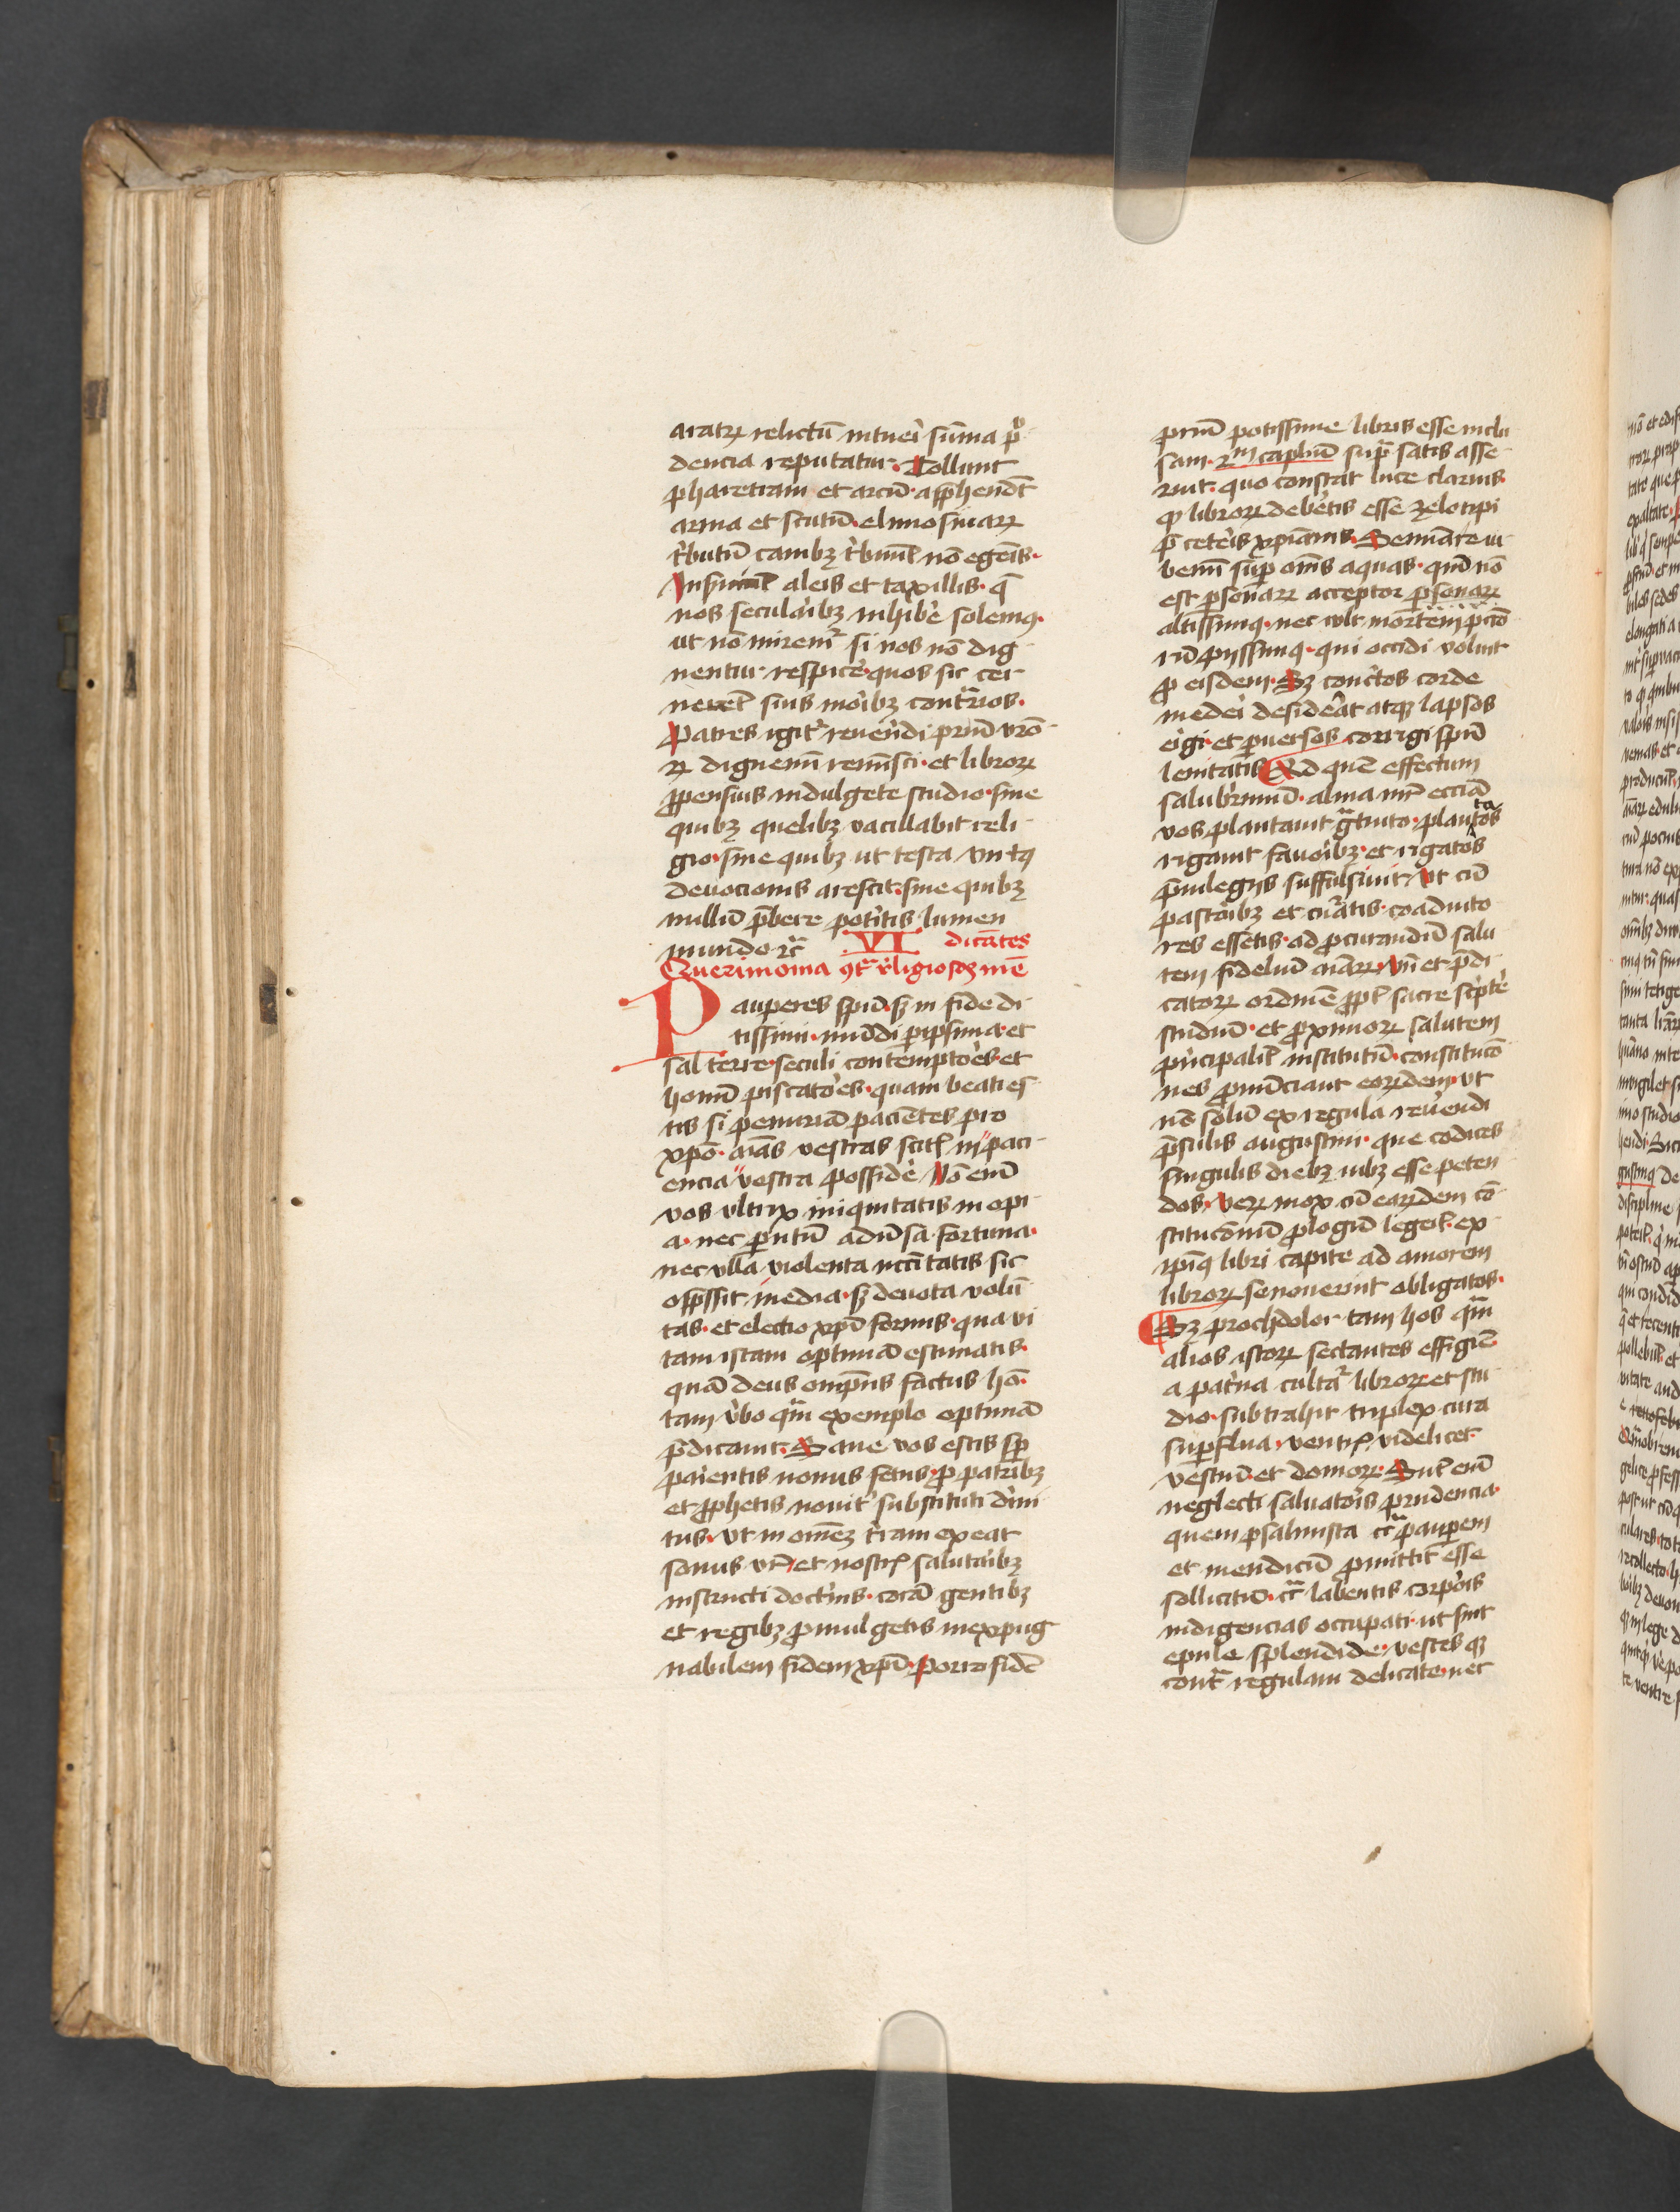 aratrꝝ relictū intueri sūma pͦ
dencia reputatur. Tollunt
pharetram et arcū. apphendūt
arma et scutū. elimosinarꝝ
t̓butū canibꝫ t̓buūt nō egenis.
Inẜuiūt aleis et taxillis. et q̄
nos seculaibꝫ inhibe solemꝰ.
ut nō miremr̄ si nos nō dig
nentur respice quos sic cer
nerent suis moibꝫ contrarios.
Patres igitr̄ reuendi prm̄ vr̄o
ꝝ dignemi remisci. et librorꝝ
ꝓpensius indulgete studio. sine
quibꝫ quelibꝫ vacillabit reli
gio. sine quibꝫ ut testa virtꝰ
deuocionis arescit. sine quibꝫ
nullū p̄bere potitis lumen
mundo ꝛc̄
VI dicātes
Querimonia ꝯt̄ religiosos mē
Pauperes spū. sꝫ in fide di
tissimi. mūdi peripsima. et
sal terre. seculi contemptoes. et
homī piscatoes. quam beati es
tis si penuriā pacientes pro
xpō. aīas vestras scitis in paci
encia vestra posside Nō enī
vos ultrix iniquitatis inopi
a. nec parentū aduersa fortuna.
nec ulla violenta nccitatis sic
opp̄ssit media. sꝫ deuota volū
tas. et electio xpī formis. qua vi
tam istam optimā estimatis.
quā deus omp̄ns factus hō.
tam v̓bo qm̄ exemplo optimā
p̄dicauit. Sane vos estis semp
paientis nouus fetus. ꝓ patribꝫ
et ꝓphetis nouit substituti diui
tus. ut in omēꝫ t̓ram exeat
sonus vr̄. et nostris salutaibꝫ
instructi doctinis. corā gentibꝫ
et regibꝫ ꝓmulgetis inexpug
nabilem fidem xpī. Porro fidē
prm̄ potissime libris esse inclu
sam. 2m caplm̄ supᷓ satis asse
ruit. quo constat luce clarius.
ꝙ librorꝝ debetis esse zelotipi
p̄ ceteis xpianis. Seminare iu
bemi sup omnes aquas. qm̄ nō
est personarꝝ acceptor personarꝝ
altissimꝰ. nec vult mortem pctō
rū pijssimꝰ. qui occidi voluit
ꝓ eisdem. Sꝫ contitos corde
medei desideat atqꝫ lapsos
eigi. et peruersos corrigi spū
lenitatis Ad quē effectum
salubrimū. alma mr̄ eccīa
vos plantauit gᷓtuito. plantatos
rigauit favoibꝫ. et rigatos
p̄uilegijs suffulsiuit. Ut cū
pastoibꝫ et curatis. coaduito
res essetis. ad ꝓcurandū salu
tem fideliū aīarꝝ. Un̄ et p̄di
catorꝝ ordinē ꝓpt sacre scripte
studiū. et ꝓximorꝝ salutem
principalit̓ institutū. constitucō
nes ꝓnūciant eorꝝdem. ut
nō solū ex regula reuendi
p̄sulis augustini. que codices
singulis diebꝫ iubꝫ esse peten
dos. Verꝝ mox cū earꝝdem cō
stitucōnū ꝓlogū legeit. ex
ipīꝰ libri capite ad amorem
librorꝝ se nouerint obligatos.
Sꝫ prochdolor tam hos qm̄
alios istorꝝ sectantes effigiē
a pat̓na cultᷓ librorꝝ et stu
dio. subtrahit triplex cura
supflua. ventris videlicet
vestiū. et domorꝝ. Sūt enī
neglecti saluatois prudencia.
quem psalmista cᷓ pauperem
et mendicū ꝓmittit esse
sollicitū. cᷓ labentis corpois
indigencias occupati. ut sint
epule splendide. vestes qꝫ
contᷓ regulam delicate. nec